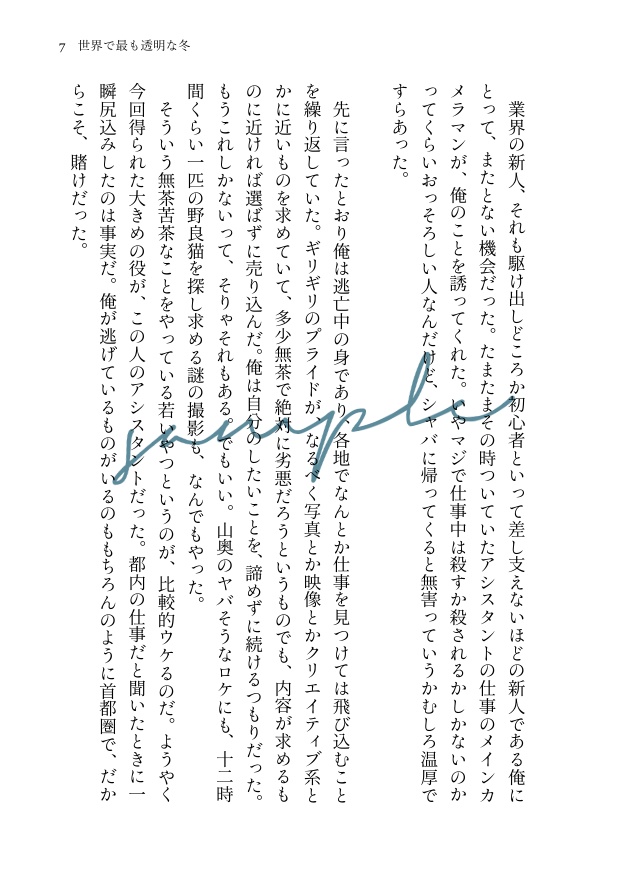 7 世界で最も透明な冬
業界の新人、それも駆け出しどころか初心者といって差し支えないほどの新人である俺に
とって、またとない機会だった。たまたまその時ついていたアシスタントの仕事のメインカ
メラマンが、俺のことを誘ってくれた。いやマジで仕事中は殺すか殺されるかしかないのか
ってくらいおっそろしい人なんだけど、シャバに帰ってくると無害っていうかむしろ温厚で
すらあった。
先に言ったとおり俺は逃亡中の身であり、各地でなんとか仕事を見つけては飛び込むこと
を繰り返していた。ギリギリのプライドが、なるべく写真とか映像とかクリエイティブ系と
かに近いものを求めていて、多少無茶で絶対に劣悪だろうというものでも、内容が求めるも
のに近ければ選ばずに売り込んだ。俺は自分のしたいことを、諦めずに続けるつもりだった。
もうこれしかないって、そりゃそれもある。でもいい。山奥のヤバそうなロケにも、十二時
間くらい一匹の野良猫を探し求める謎の撮影も、なんでもやった。
そういう無茶苦茶なことをやっている若いやつというのが、比較的ウケるのだ。ようやく
今回得られた大きめの役が、この人のアシスタントだった。都内の仕事だと聞いたときに一
瞬尻込みしたのは事実だ。俺が逃げているものがいるのももちろんのように首都圏で、だか
らこそ、賭けだった。
sample